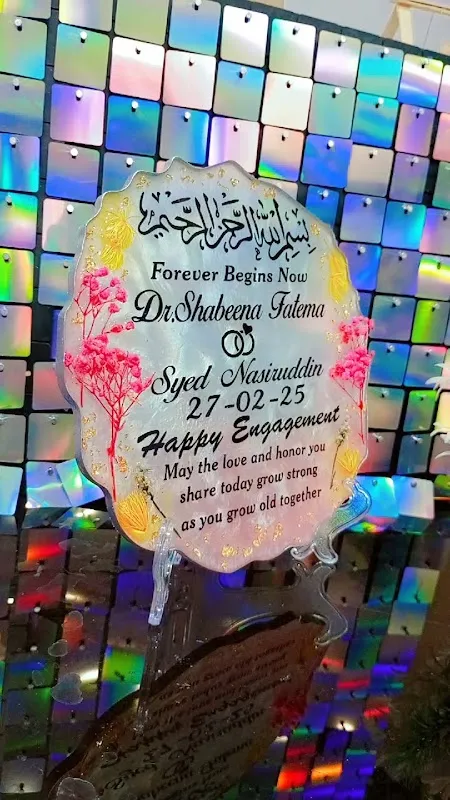 بسم الله الرحمن الرحيم
Forever Begins Now
Dr.Shabeena Fatema
Syed Nasiruddin
27-02-25
Happy Engagement
May the love and honor you
share today grow strong
as you grow old together